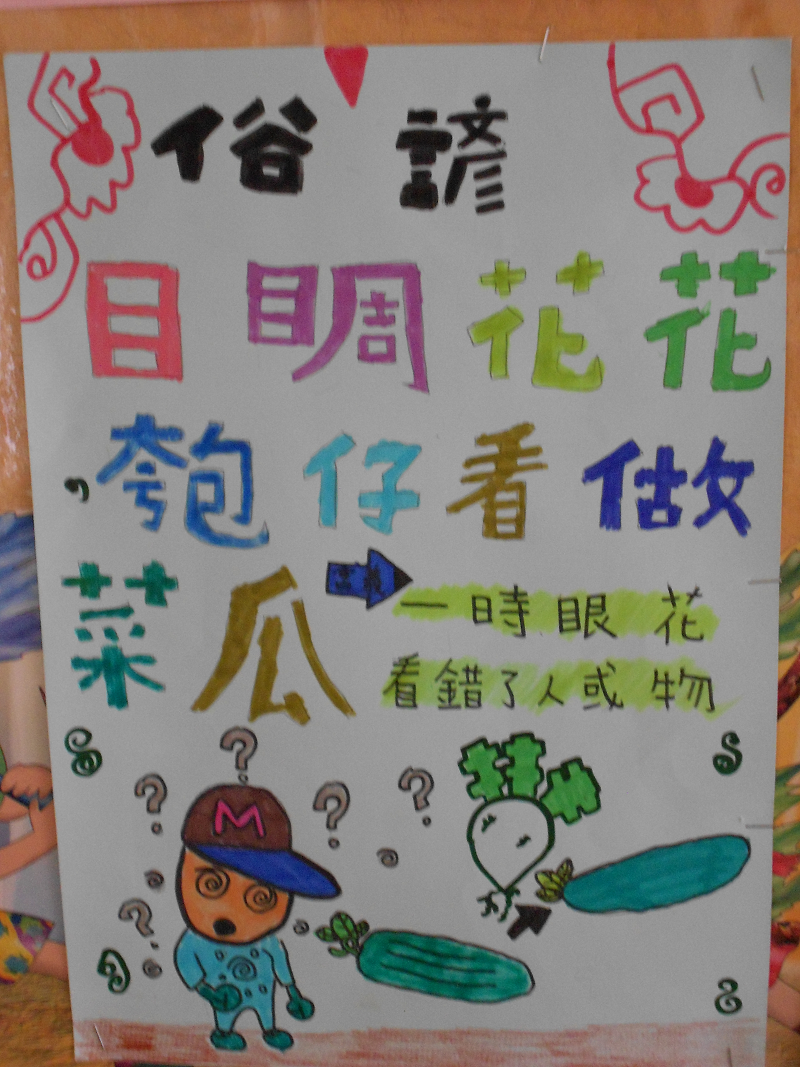 俗諺
目睭花花
，匏仔看做
菜瓜
一時眼花
看錯了人或物
M